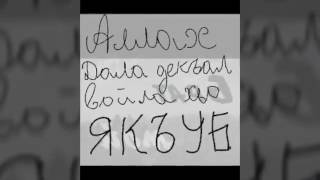 Аллах
Дала декъал
войла хьо
ЯКЪУБ